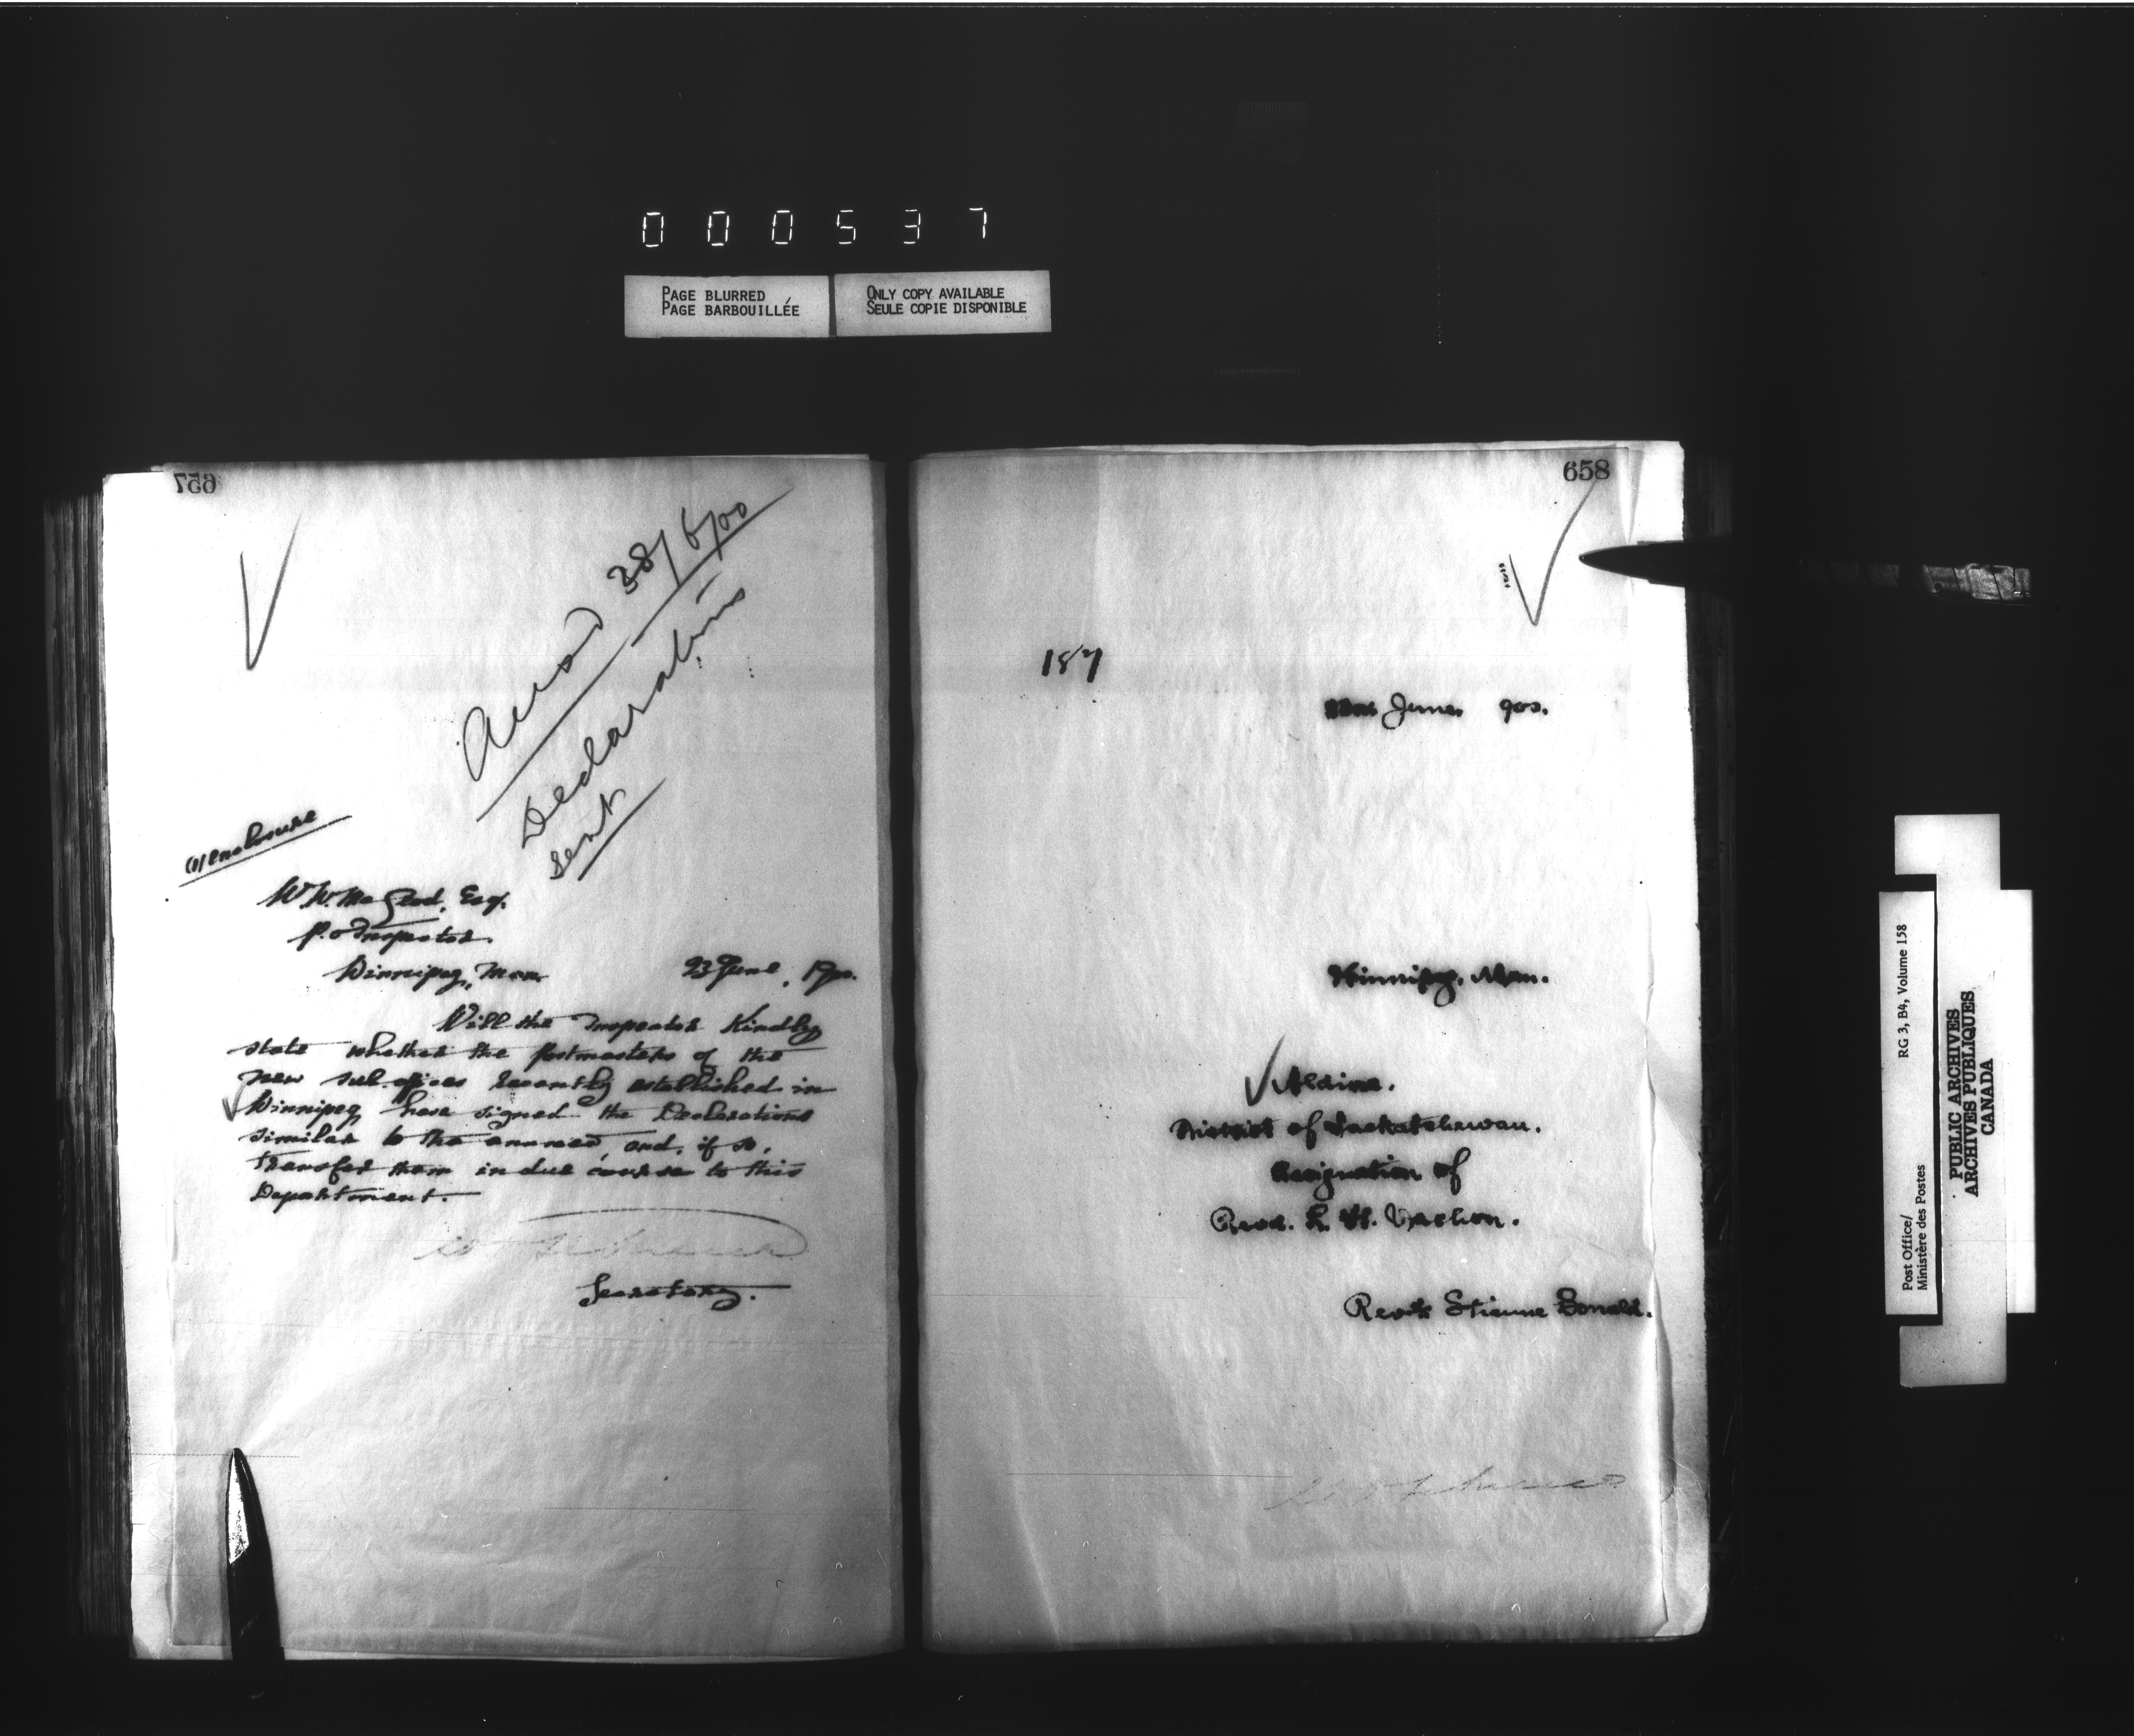 000537
PAGE BLURRED
PAGE BARBOUILLÉE
ONLY COPY AVAILABLE
SEULE COPIE DISPONIBLE
657
28/6/00
Declarations
sent
(1) enclosure
W.W. McLeod, Esq.
P.O Inspector.
Winnipeg, Man. 23 June, 1900.
Will the Inspector Kindly
state whether the postmasters of the
new sub. offices recently established in
Winnipeg have signed the Declarations
similar to the annexed, and, if so,
transfer them in due course to this
Department.
Secretary.
658
187
June 900.
Winnipeg, Man.
Aldina.
District of Saskatchewan.
Resignation of
Revd. Vachon.
Revd. Etienne Bonald.
Post Office/
Ministère des Postes
RG 3, B4, Volume 158
PUBLIC ARCHIVES
ARCHIVES PUBLIQUES
CANADA